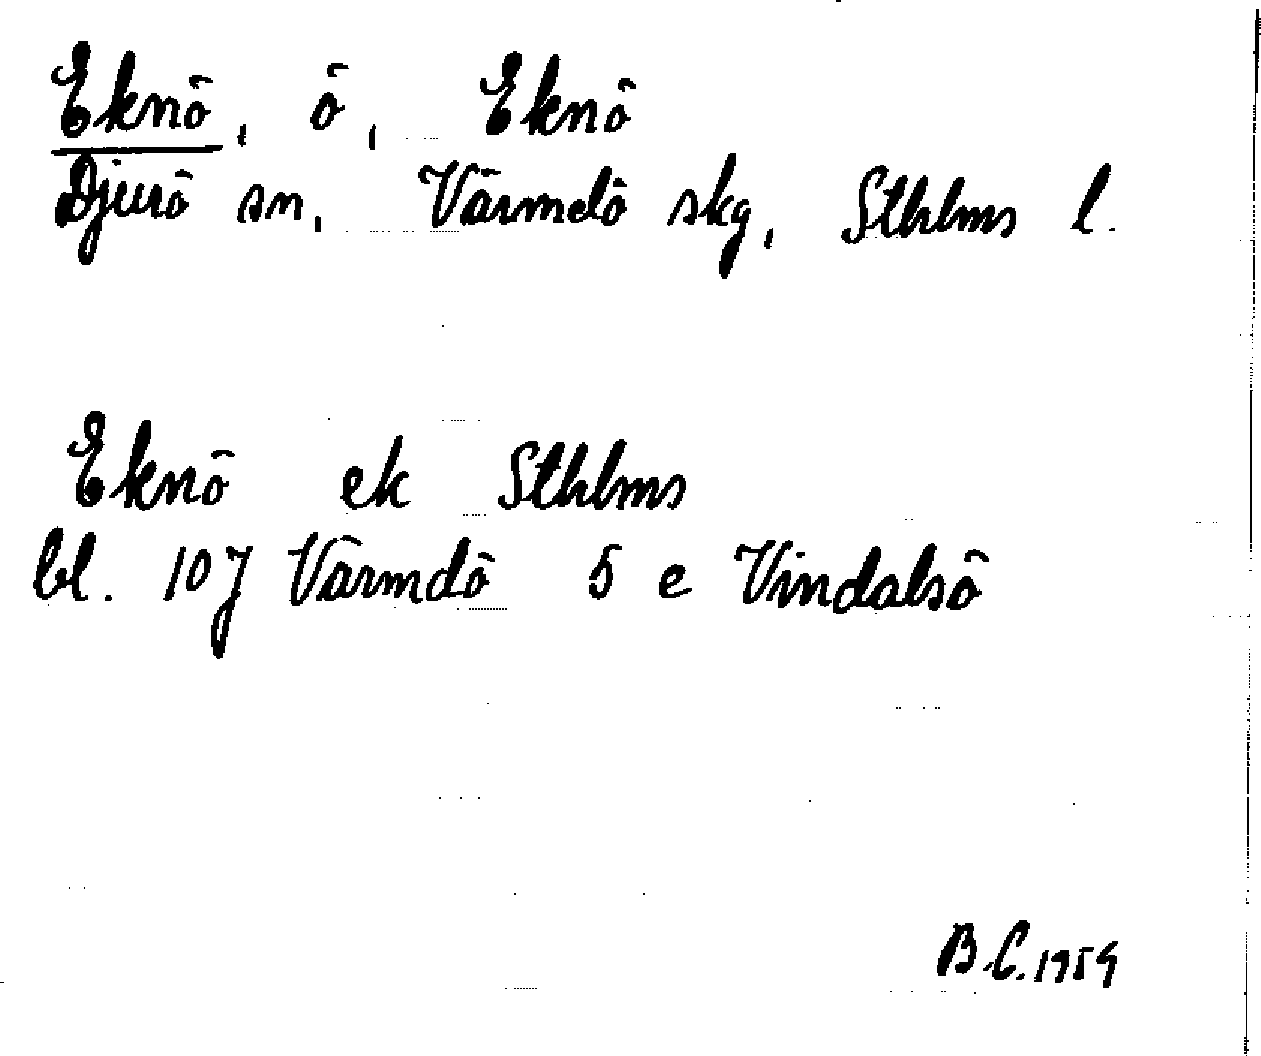 Eknö, ö, Eknö
Djurö sn, Värmdö skg, Sthlms l.
Eknö ek Sthlms
bl. 107 Värmdö 5 e Vindalsö
B.C. 1959